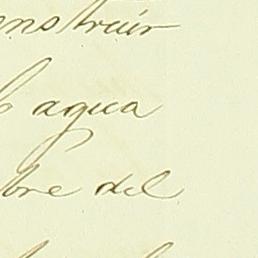 onstruir
agua
bre del